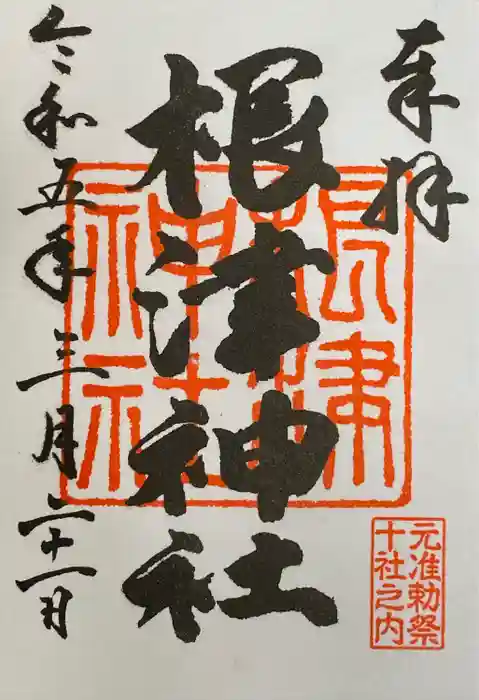 奉拝
根津神社
根津
神社
令和五年三月二十一日
元准勅祭
十社之内